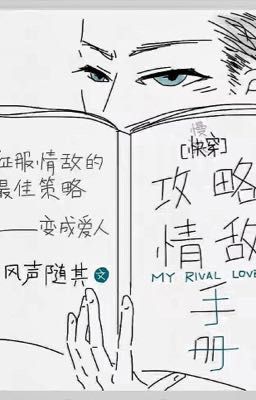 征服情敌的
最佳策略
——变成爱人
风声随其 文
慢
[快穿]
攻略
情敌
MY RIVAL LOVE
手
册